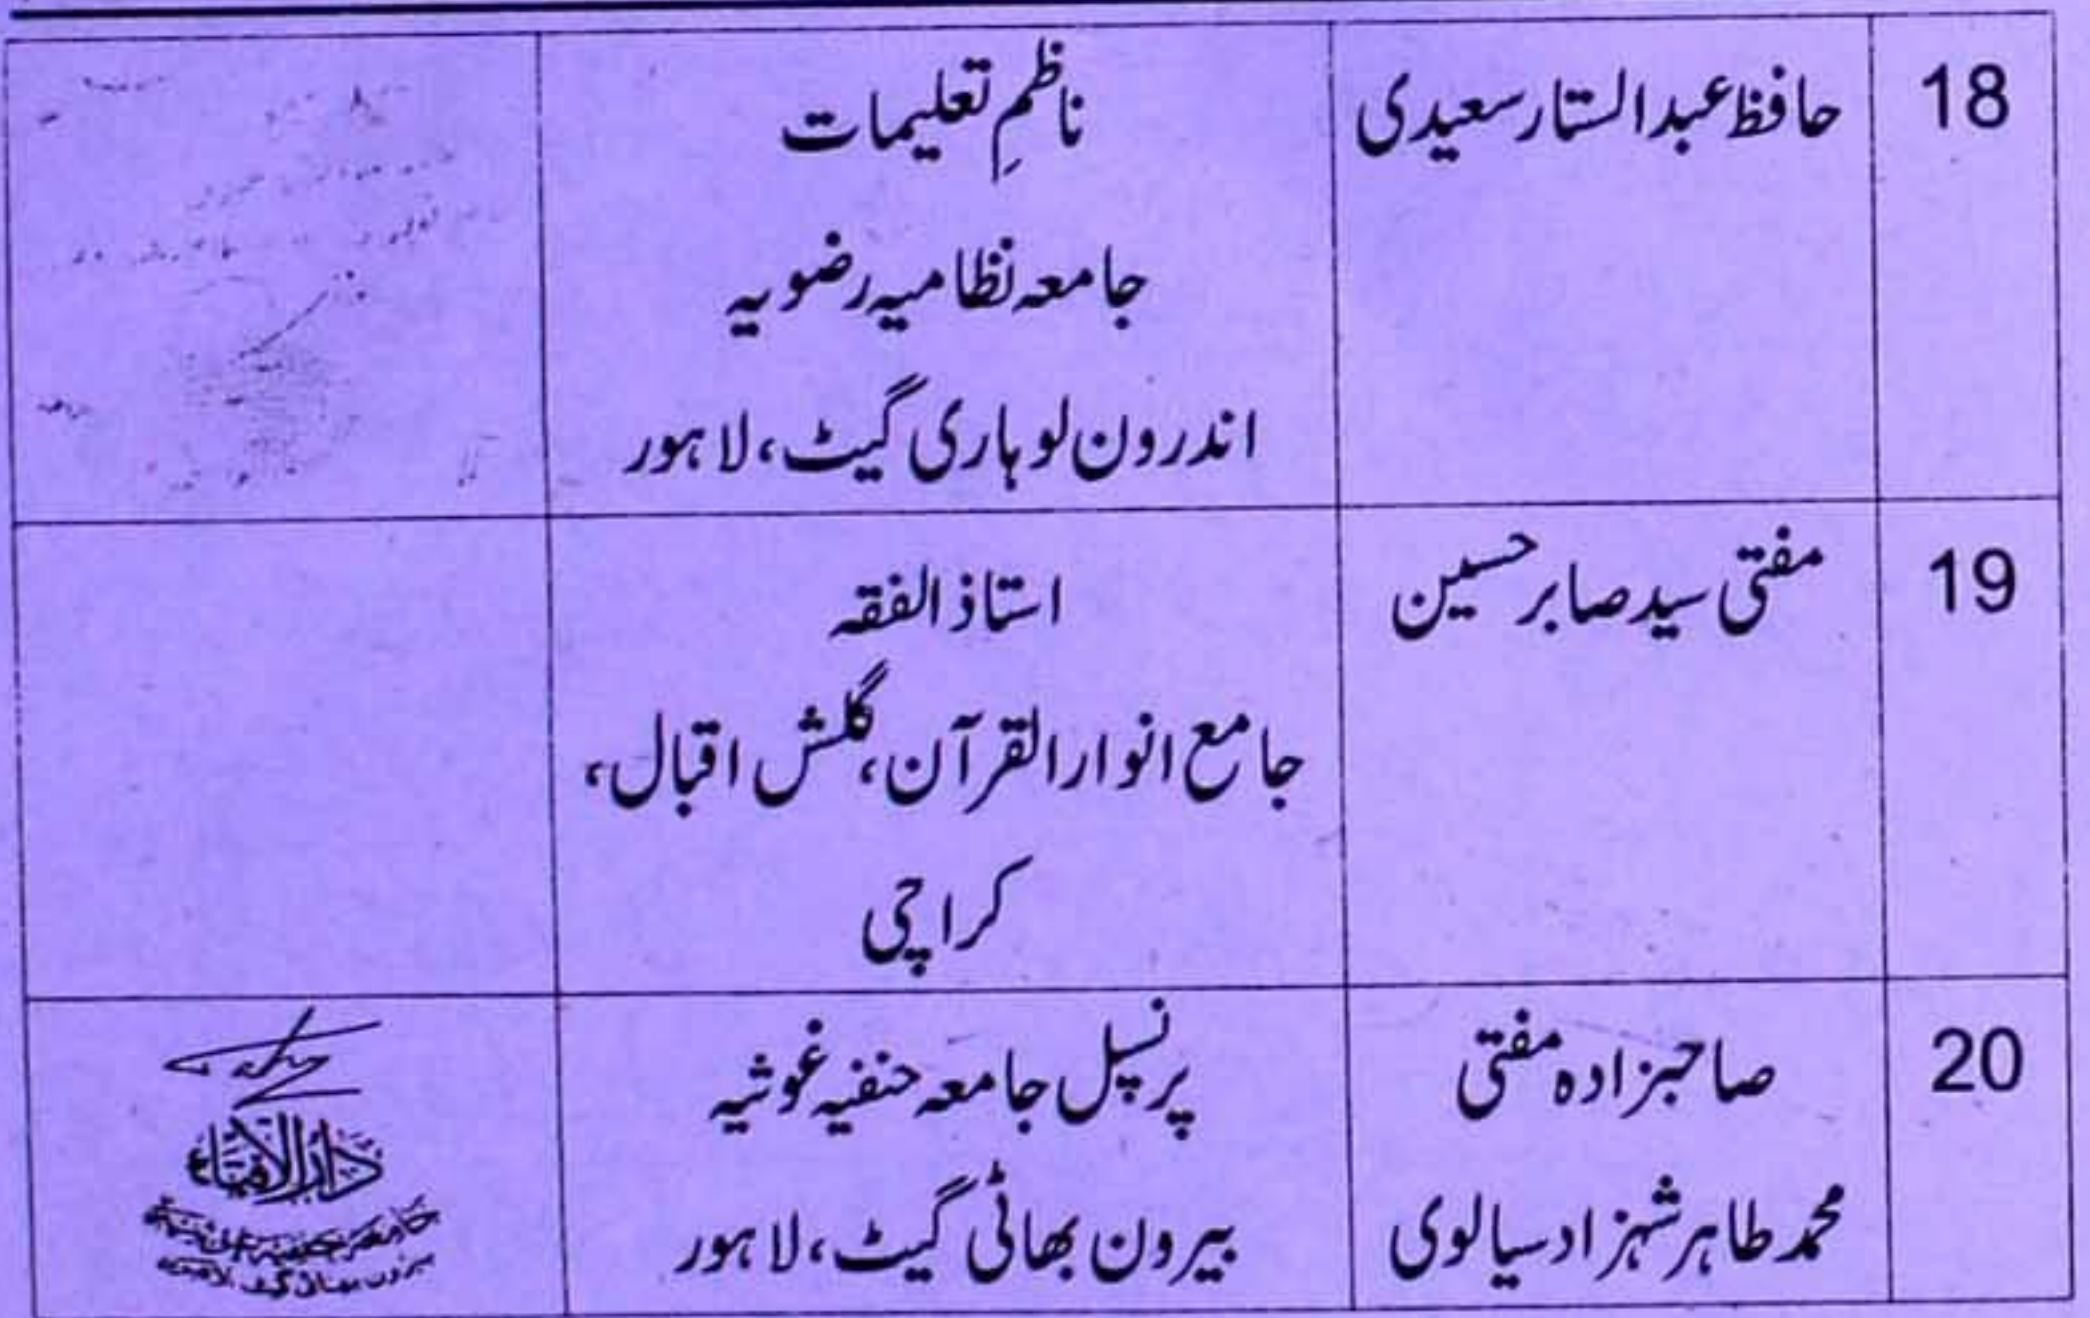 18
حافظ عبدالستار سعیدی
ناظمِ تعلیمات
جامعہ نظامیہ رضویہ
اندرون لوہاری گیٹ، لاہور
19
مفتی سید صابر حسین
استاذ الفقہ
جامع انوار القرآن، گلشن اقبال،
کراچی
20
صاحبزادہ مفتی
محمد طاہر شہزاد سیالوی
پرنسپل جامعہ حنفیہ غوثیہ
بیرون بھاٹی گیٹ، لاہور
دارالافتاء
جامعہ حنفیہ غوثیہ
بیرون بھاٹی گیٹ لاہور